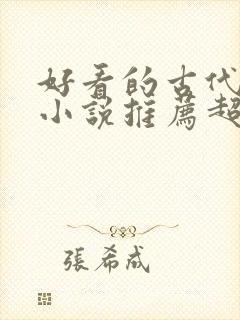 好看的古代
小説推薦超
張希成